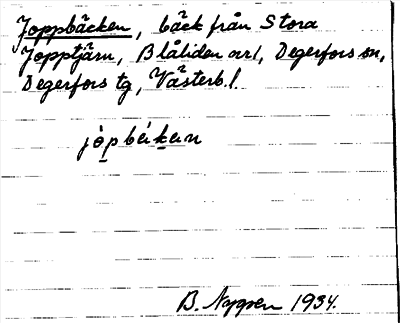 Joppbäcken, bäck från Stora
Jopptjärn, Blåliden avl, Degerfors sn,
Degerfors tg, Västerb. l.
B. Nygren 1934.